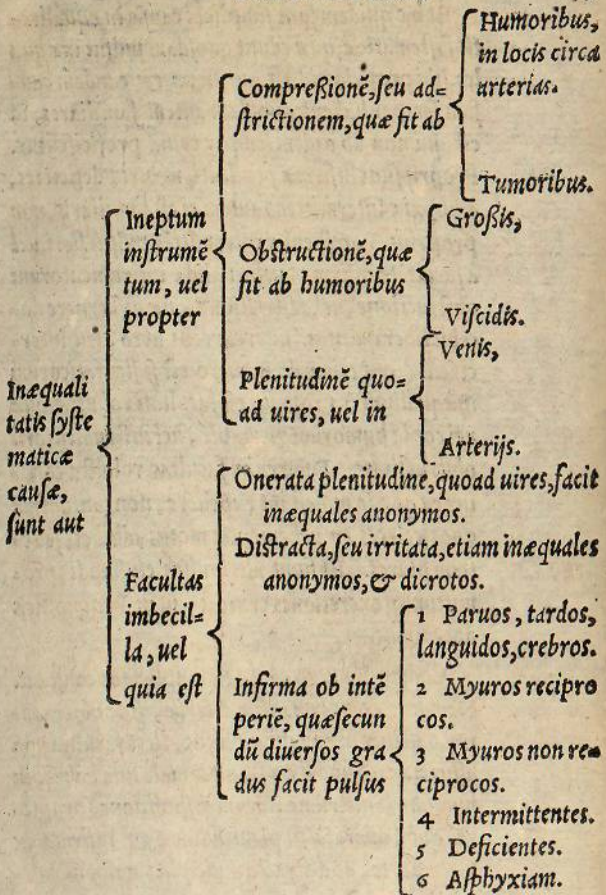 Inæquali
tatis syste
maticæ
causæ,
sunt aut
Ineptum
instrumẽ
tum, uel
propter
Compreßionẽ, seu ad=
strictionem, quæ fit ab
Humoribus,
in locis circa
arterias.
Tumoribus.
Obstructionẽ, quæ
fit ab humoribus
Großis,
Viscidis.
Plenitudinẽ quo=
ad uires, uel in
Venis,
Arterijs.
Facultas
imbecil=
la, uel
quia est
Onerata plenitudine, quoad uires, facit
inæquales anonymos.
Distracta, seu irritata, etiam inæquales
anonymos, & dicrotos.
Infirma ob intẽ
periẽ, quæ secun
dũ diuersos gra
dus facit pulsus
1 Paruos, tardos,
languidos, crebros.
2 Myuros recipro
cos.
3 Myuros non re=
ciprocos.
4 Intermittentes.
5 Deficientes.
6 Asphyxiam.